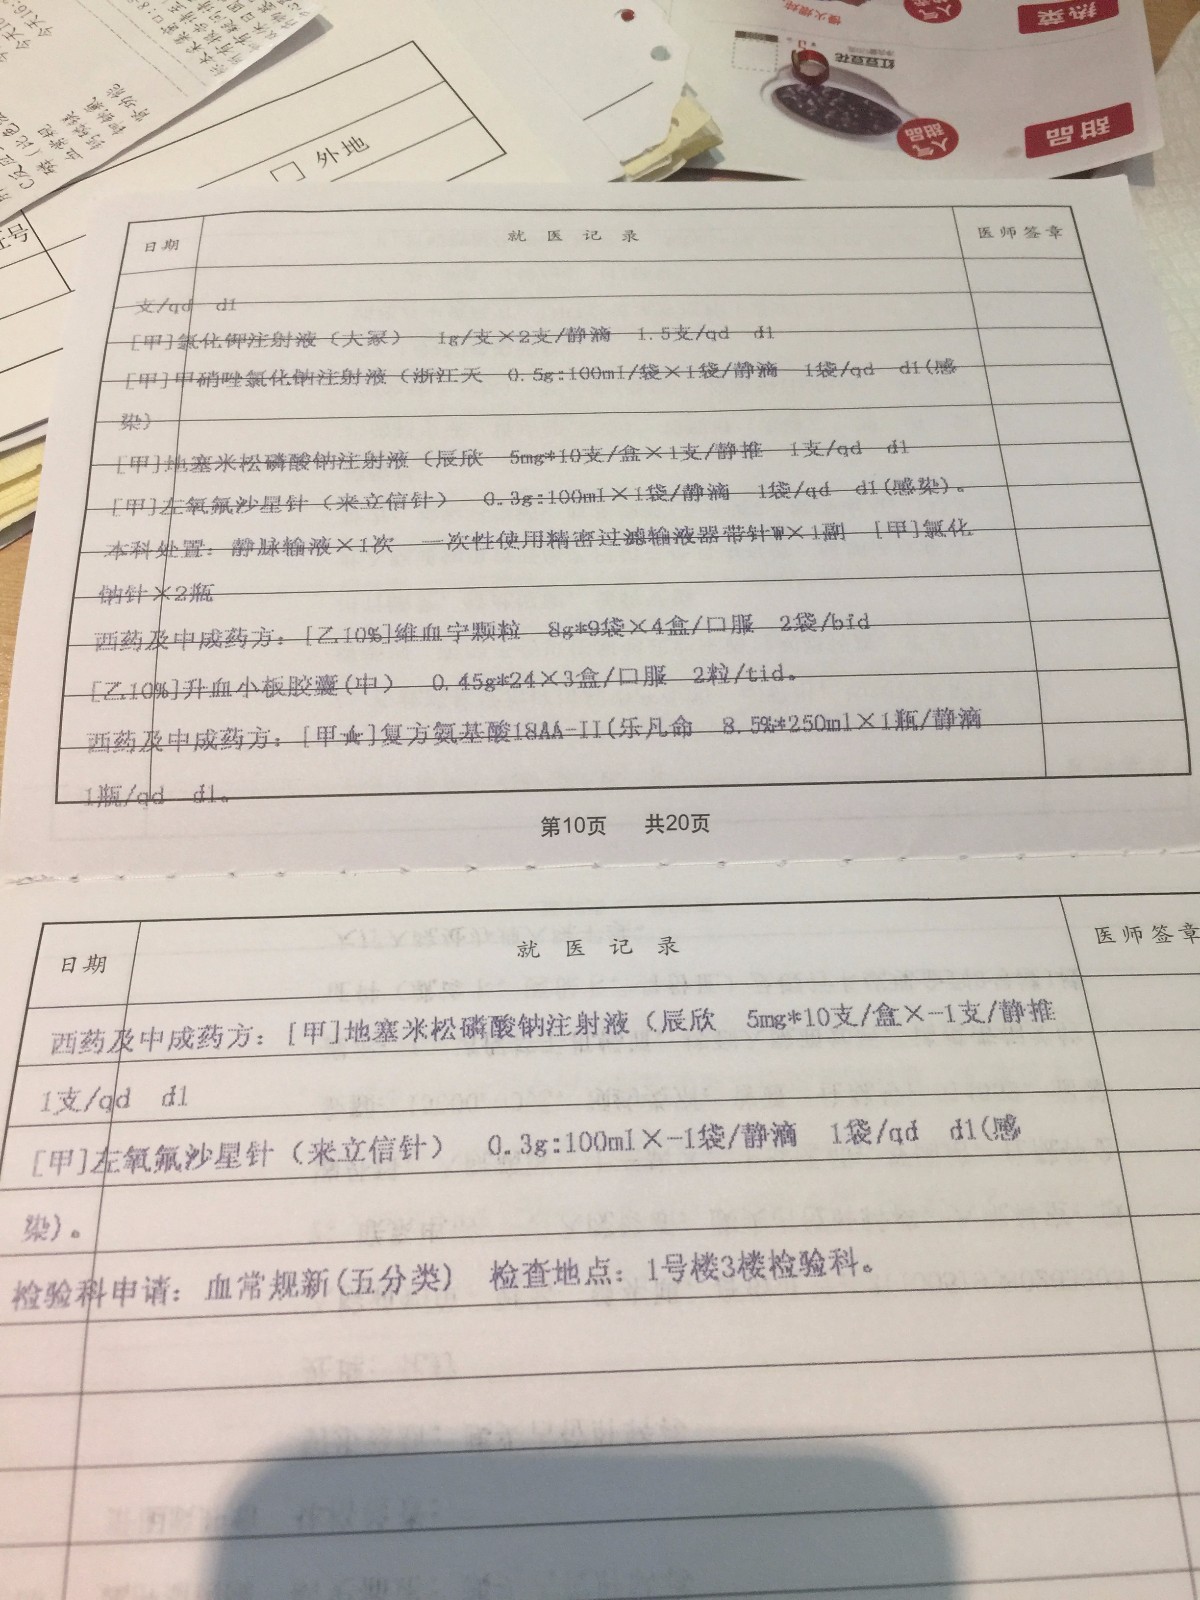 今天16:
外地
热菜
人气
甜品
红豆豆花
甜品
日期 就医记录 医师签章
支/qd d1
[甲]氯化钾注射液（大冢） 1g/支×2支/静滴 1.5支/qd d1
[甲]甲硝唑氯化钠注射液（浙江天 0.5g:100ml/袋×1袋/静滴 1袋/qd d1(感
染)
[甲]地塞米松磷酸钠注射液（辰欣 5mg*10支/盒×1支/静推 1支/qd d1
[甲]左氧氟沙星针（来立信针） 0.3g:100ml×1袋/静滴 1袋/qd d1(感染)。
本科处置: 静脉输液×1次 一次性使用精密过滤输液器带针W×1副 [甲]氯化
钠针×2瓶
西药及中成药方: [乙10%]维血宁颗粒 8g*9袋×4盒/口服 2袋/bid
[乙10%]升血小板胶囊(中) 0.45g*24×3盒/口服 2粒/tid。
西药及中成药方: [甲★]复方氨基酸18AA-II(乐凡命 8.5%*250ml×1瓶/静滴
1瓶/qd d1。
第10页 共20页
日期 就医记录 医师签章
西药及中成药方: [甲]地塞米松磷酸钠注射液（辰欣 5mg*10支/盒×-1支/静推
1支/qd d1
[甲]左氧氟沙星针（来立信针） 0.3g:100ml×-1袋/静滴 1袋/qd d1(感
染)。
检验科申请: 血常规新(五分类) 检查地点: 1号楼3楼检验科。